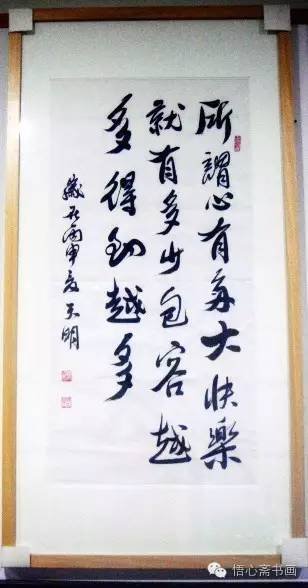 所謂心有多大快樂
就有多少包容越
多得到越多
歲在丙申夏天明
悟心斋书画